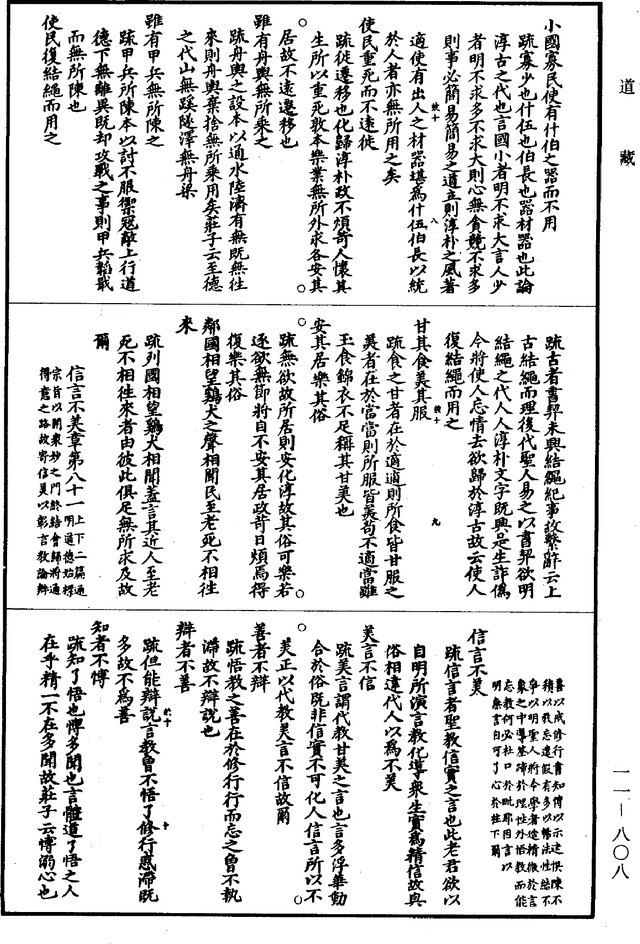 道藏
小國寡民使有什伯之器而不用
疏寡少也什伍也伯長也器材器也此論
淳古之代也言國小者明不求大言人少
者明不求多不求大則心無貪競不求多
則事必簡易簡易之道立則淳朴之風著
適使有出人之材器堪為什伍伯長以統
於人者亦無所用之矣
使民重死而不遠徙
疏徙遷移也化歸淳朴政不煩苛人懷其
生所以重死敦本樂業無所外求各安其
居故不遠遷移也
雖有舟輿無所乘之
疏舟輿之設本以通水陸濟有無既無往
來則舟輿棄捨無所乘用矣莊子云至德
之代山無蹊隧澤無舟梁
雖有甲兵無所陳之
疏甲兵所陳本以討不服禦冦敵上行道
德下無離異既却攻戰之事則甲兵韜戢
而無所陳也
使民復結繩而用之
疏古者書契未興結繩紀事故繫辭云上
古結繩而理後代聖人易之以書契欲明
結繩之代人人淳朴文字既興是生詐偽
今將使人忘情去欲歸於淳古故云使人
復結繩而用之
甘其食美其服
疏食之甘者在於適適則所食皆甘服之
美者在於當當則所服皆美苟不適當雖
玉食錦衣不足稱其甘美也
安其居樂其俗
疏無欲故所居則安化淳故其俗可樂若
逐欲無節將自不安其居政苛日煩焉得
復樂其俗
鄰國相望雞犬之聲相聞民至老死不相往
來
疏列國相望雞犬相聞蓋言其近人至老
死不相往來者由彼此俱足無所求及故
爾
信言不美章第八十一
上下二篇通明道德始標
宗旨以開衆妙之門終結會歸將通
得意之路故寄信美以彰言教論辯
善以戒修行書知博以示迷悞陳不
積以祛忘遣假有多以暢法性結不
爭以明聖人將令學者造精微於言
象之中導筌蹄於理性外悟教而能
忘教何必杜口於毗耶因言以
明無言自可了心於柱下爾
信言不美
疏信言者聖教信實之言也此老君欲以
自明所演言教化導衆生實為精信故與
俗相違代人以為不美
美言不信
疏美言謂代教甘美之言也言多浮華動
合於俗既非信實不可化人信言所以不
美正以代教美言不信故爾
善者不辯
疏悟教之善在於修行行而忘之曾不執
滯故不辯說也
辯者不善
疏但能辯說言教曾不悟了修行惑滯既
多故不為善
知者不博
疏知了悟也博多聞也言體道了悟之人
在乎精一不在多聞故莊子云博溺心也
一一—八〇八